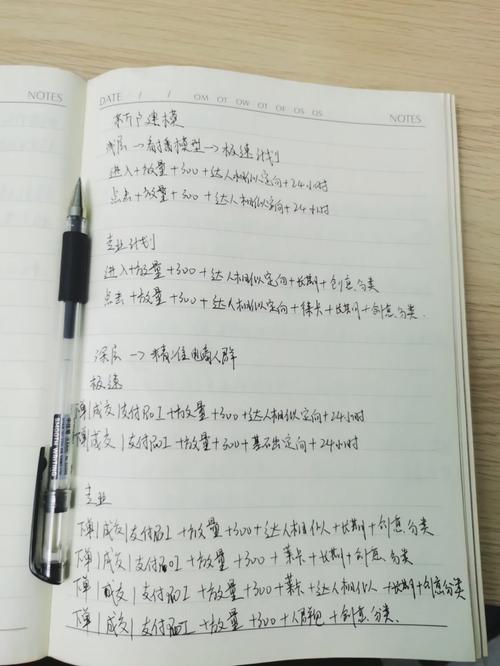 NOTES
DATE / / OM OT OW OT OF OS OS
NOTES
新户建模
浅层→ 模型→极速计划
进入+放量+300+达人相似定向+24小时
点击+放量+300+达人相似定向+24小时
专业计划
进入+放量+300+达人相似定向+长期+创意分类
点击+放量+300+达人相似定向+徕卡+长期+创意分类.
深层→精准电商人群
极速
下单|成交|支付ROI+放量+300+达人相似定向+24小时
下单|成交|支付ROI+放量+300+基础定向+24小时
专业
下单|成交|支付ROI+放量+300+达人相似人+长期+创意分类
下单|成交|支付ROI+放量+300+莱卡+长期+创意分类
下单|成交|支付ROI+放量+300+莱卡+达人相似人+长期+创意分类
下单|成交|支付ROI+放量+300+人群包+创意分类.
SMOOTH WRITING